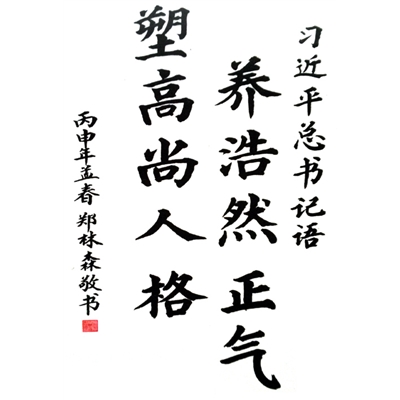 习近平总书记语
养浩然正气
塑高尚人格
丙申年孟春 郑林森敬书